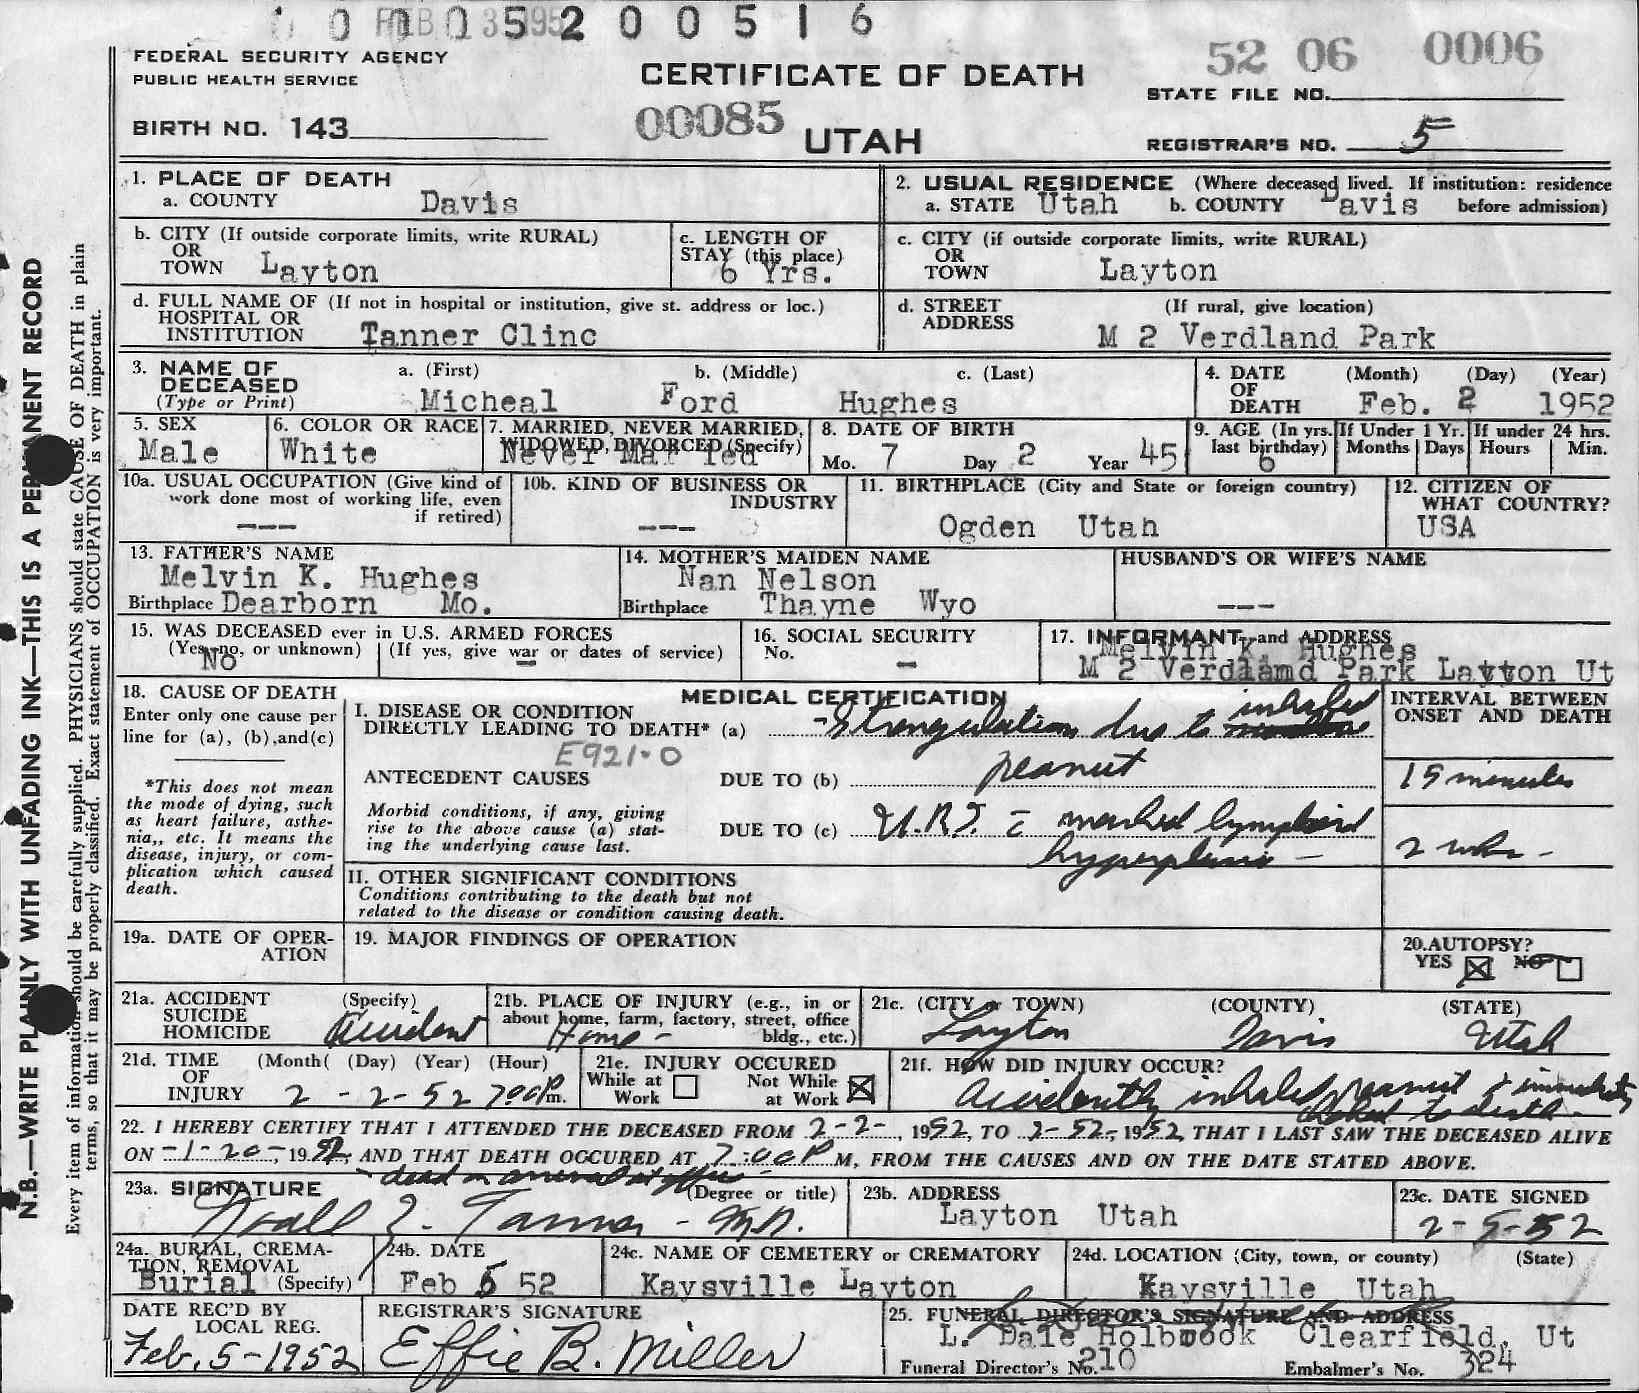 0 0 0 0 5 2 0 0 5 1 6
FEB 13 1952
FEDERAL SECURITY AGENCY
PUBLIC HEALTH SERVICE
CERTIFICATE OF DEATH
52 06 0006
STATE FILE NO.
BIRTH NO. 143
00085
UTAH
REGISTRAR'S NO. 5
1. PLACE OF DEATH
a. COUNTY Davis
2. USUAL RESIDENCE (Where deceased lived. If institution: residence
a. STATE Utah b. COUNTY Davis before admission)
b. CITY (If outside corporate limits, write RURAL)
OR
TOWN Layton
c. LENGTH OF
STAY (this place)
6 Yrs.
c. CITY (if outside corporate limits, write RURAL)
OR
TOWN Layton
d. FULL NAME OF (If not in hospital or institution, give st. address or loc.)
HOSPITAL OR
INSTITUTION Tanner Clinc
d. STREET (If rural, give location)
ADDRESS
M 2 Verdland Park
3. NAME OF
DECEASED
(Type or Print)
a. (First) b. (Middle) c. (Last)
Micheal Ford Hughes
4. DATE (Month) (Day) (Year)
OF
DEATH Feb. 2 1952
5. SEX
Male
6. COLOR OR RACE
White
7. MARRIED, NEVER MARRIED,
WIDOWED, DIVORCED (Specify)
Never Married
8. DATE OF BIRTH
Mo. 7 Day 2 Year 45
9. AGE (In yrs. last birthday)
6
If Under 1 Yr. If under 24 hrs.
Months Days Hours Min.
10a. USUAL OCCUPATION (Give kind of
work done most of working life, even
if retired)
---
10b. KIND OF BUSINESS OR
INDUSTRY
---
11. BIRTHPLACE (City and State or foreign country)
Ogden Utah
12. CITIZEN OF
WHAT COUNTRY?
USA
13. FATHER'S NAME
Melvin K. Hughes
Birthplace Dearborn Mo.
14. MOTHER'S MAIDEN NAME
Nan Nelson
Birthplace Thayne Wyo
HUSBAND'S OR WIFE'S NAME
---
15. WAS DECEASED ever in U.S. ARMED FORCES
(Yes, no, or unknown) (If yes, give war or dates of service)
No -
16. SOCIAL SECURITY
No. -
17. INFORMANT and ADDRESS
Melvin K. Hughes
M 2 Verdland Park Layton Ut
18. CAUSE OF DEATH
Enter only one cause per
line for (a), (b), and (c)
*This does not mean
the mode of dying, such
as heart failure, asthe-
nia,, etc. It means the
disease, injury, or com-
plication which caused
death.
MEDICAL CERTIFICATION
I. DISEASE OR CONDITION
DIRECTLY LEADING TO DEATH* (a) Strangulation due to inhaled
E921.0
ANTECEDENT CAUSES DUE TO (b) peanut
Morbid conditions, if any, giving
rise to the above cause (a) stat-
ing the underlying cause last.
DUE TO (c) U.R.I. c̄ marked lymphoid
hyperplasia -
INTERVAL BETWEEN
ONSET AND DEATH
15 minutes
2 wks -
II. OTHER SIGNIFICANT CONDITIONS
Conditions contributing to the death but not
related to the disease or condition causing death.
19a. DATE OF OPER-
ATION
19. MAJOR FINDINGS OF OPERATION
20. AUTOPSY?
YES NO
21a. ACCIDENT (Specify)
SUICIDE
HOMICIDE Accident
21b. PLACE OF INJURY (e.g., in or
about home, farm, factory, street, office
bldg., etc.)
Home -
21c. (CITY or TOWN) (COUNTY) (STATE)
Layton Davis Utah
21d. TIME (Month( (Day) (Year) (Hour)
OF
INJURY 2 - 2 - 52 7:00 P m.
21e. INJURY OCCURED
While at Work
Not While at Work
21f. HOW DID INJURY OCCUR?
Accidently inhaled peanut & immediately
choked to death -
22. I HEREBY CERTIFY THAT I ATTENDED THE DECEASED FROM 2-2-, 1952, TO 2-52-, 1952, THAT I LAST SAW THE DECEASED ALIVE
ON -1-20-, 1952, AND THAT DEATH OCCURED AT 7:00 P M, FROM THE CAUSES AND ON THE DATE STATED ABOVE.
- dead on arrival at office -
23a. SIGNATURE (Degree or title)
Noall Z. Tanner - M.D.
23b. ADDRESS
Layton Utah
23c. DATE SIGNED
2-5-52
24a. BURIAL, CREMA-
TION, REMOVAL
Burial (Specify)
24b. DATE
Feb 5 52
24c. NAME OF CEMETERY or CREMATORY
Kaysville Layton
24d. LOCATION (City, town, or county) (State)
Kaysville Utah
DATE REC'D BY
LOCAL REG.
Feb. 5-1952
REGISTRAR'S SIGNATURE
Effie B. Miller
25. FUNERAL DIRECTOR'S SIGNATURE AND ADDRESS
L. Dale Holbrook Clearfield, Ut
Funeral Director's No. 210 Embalmer's No. 324
N.B.—WRITE PLAINLY WITH UNFADING INK—THIS IS A PERMANENT RECORD
Every item of information should be carefully supplied. PHYSICIANS should state CAUSE OF DEATH in plain
terms, so that it may be properly classified. Exact statement of OCCUPATION is very important.